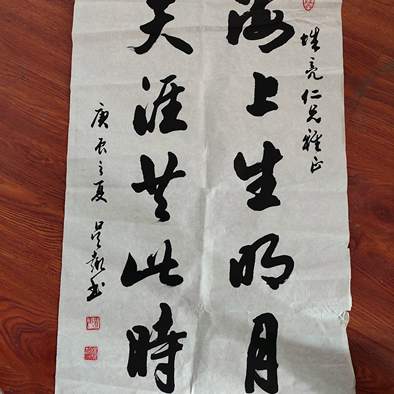 海上生明月
天涯共此時
仁兄雅正
庚辰之夏